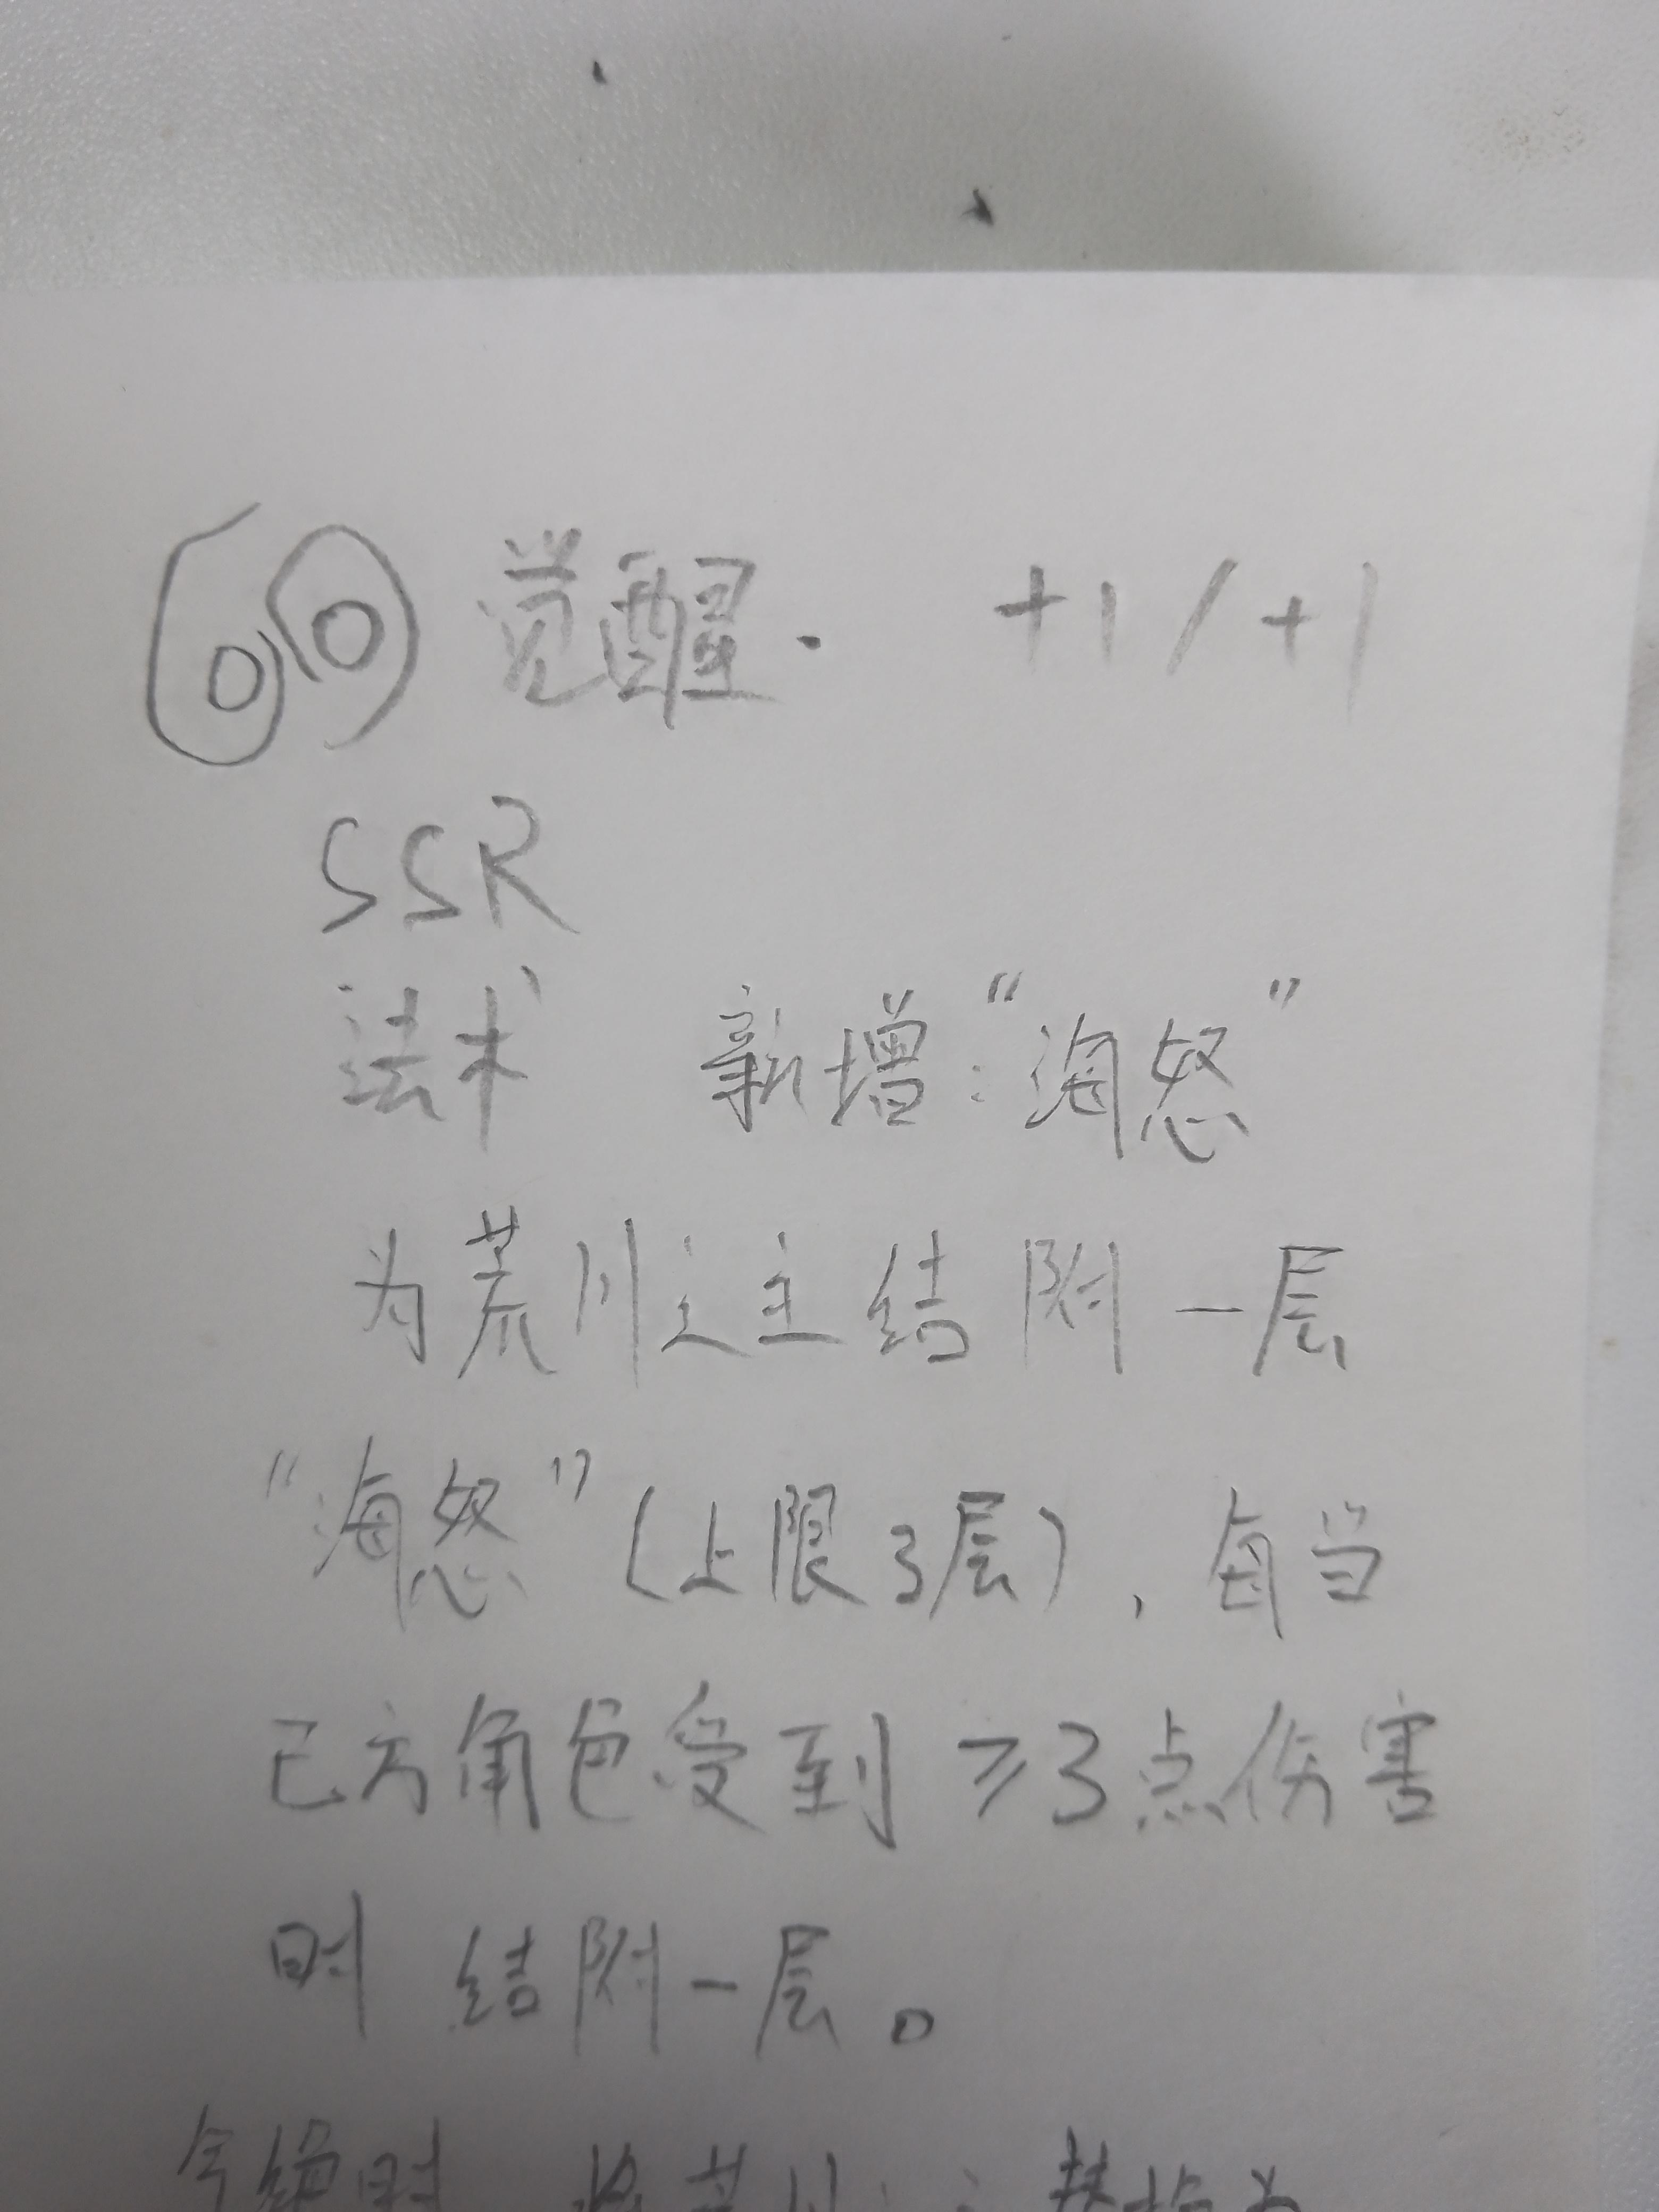 觉醒. +1/+1
SSR
法术 新增:“海怒”
为荒川之主结附一层
“海怒”(上限3层),每当
己方角色受到≥3点伤害
时 结附一层。
气绝时